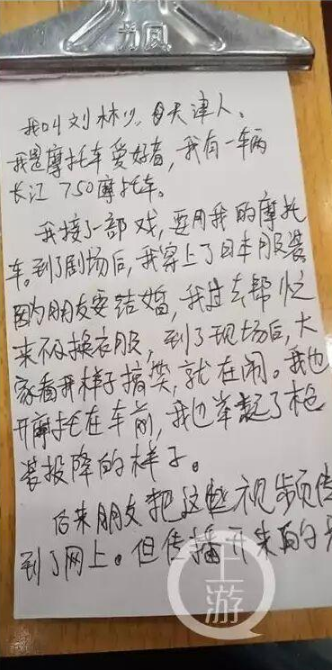 力风
我叫刘林火。天津人。
我是摩托车爱好者,我有一辆
长江750摩托车。
我接了一部戏,要用我的摩托
车。到了剧场后,我穿上了日本服装
因为朋友要结婚,我过去帮忙
来不及换衣服,到了现场后,大
家看样子搞笑,就在闹。我也
开摩托在车前,我也举起了枪
装投降的样子。
后来朋友把这些视频传
到了网上。但传播开来的
上游